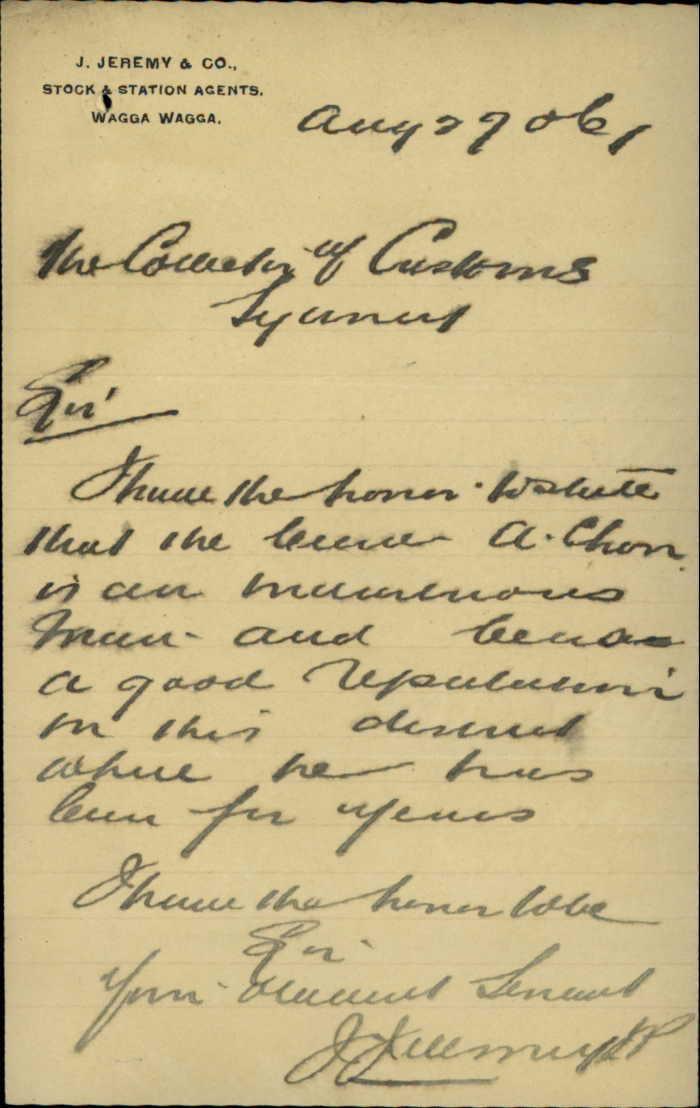 J. JEREMY & CO.,
STOCK & STATION AGENTS.
WAGGA WAGGA.
Aug 29 06
The Collector of Customs
Sydney
Sir
I have the honor to state
that the bearer A. Chon
is an industrious
man and bears
a good reputation
in this district
where he has
been for years
I have the honor to be
Sir
Your obedient Servant
J Jeremy JP